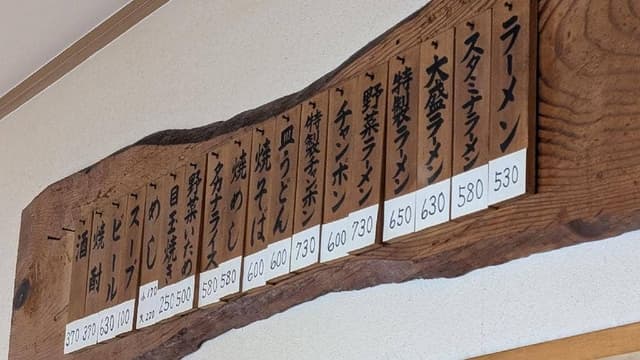 ラーメン
530
スタミナラーメン
580
大盛ラーメン
630
特製ラーメン
650
野菜ラーメン
730
チャンポン
600
特製チャンポン
730
皿うどん
600
焼そば
600
焼めし
580
タカナライス
580
野菜いため
500
目玉焼き
250
めし
小170
大220
スープ
100
ビール
630
焼酎
370
酒
370